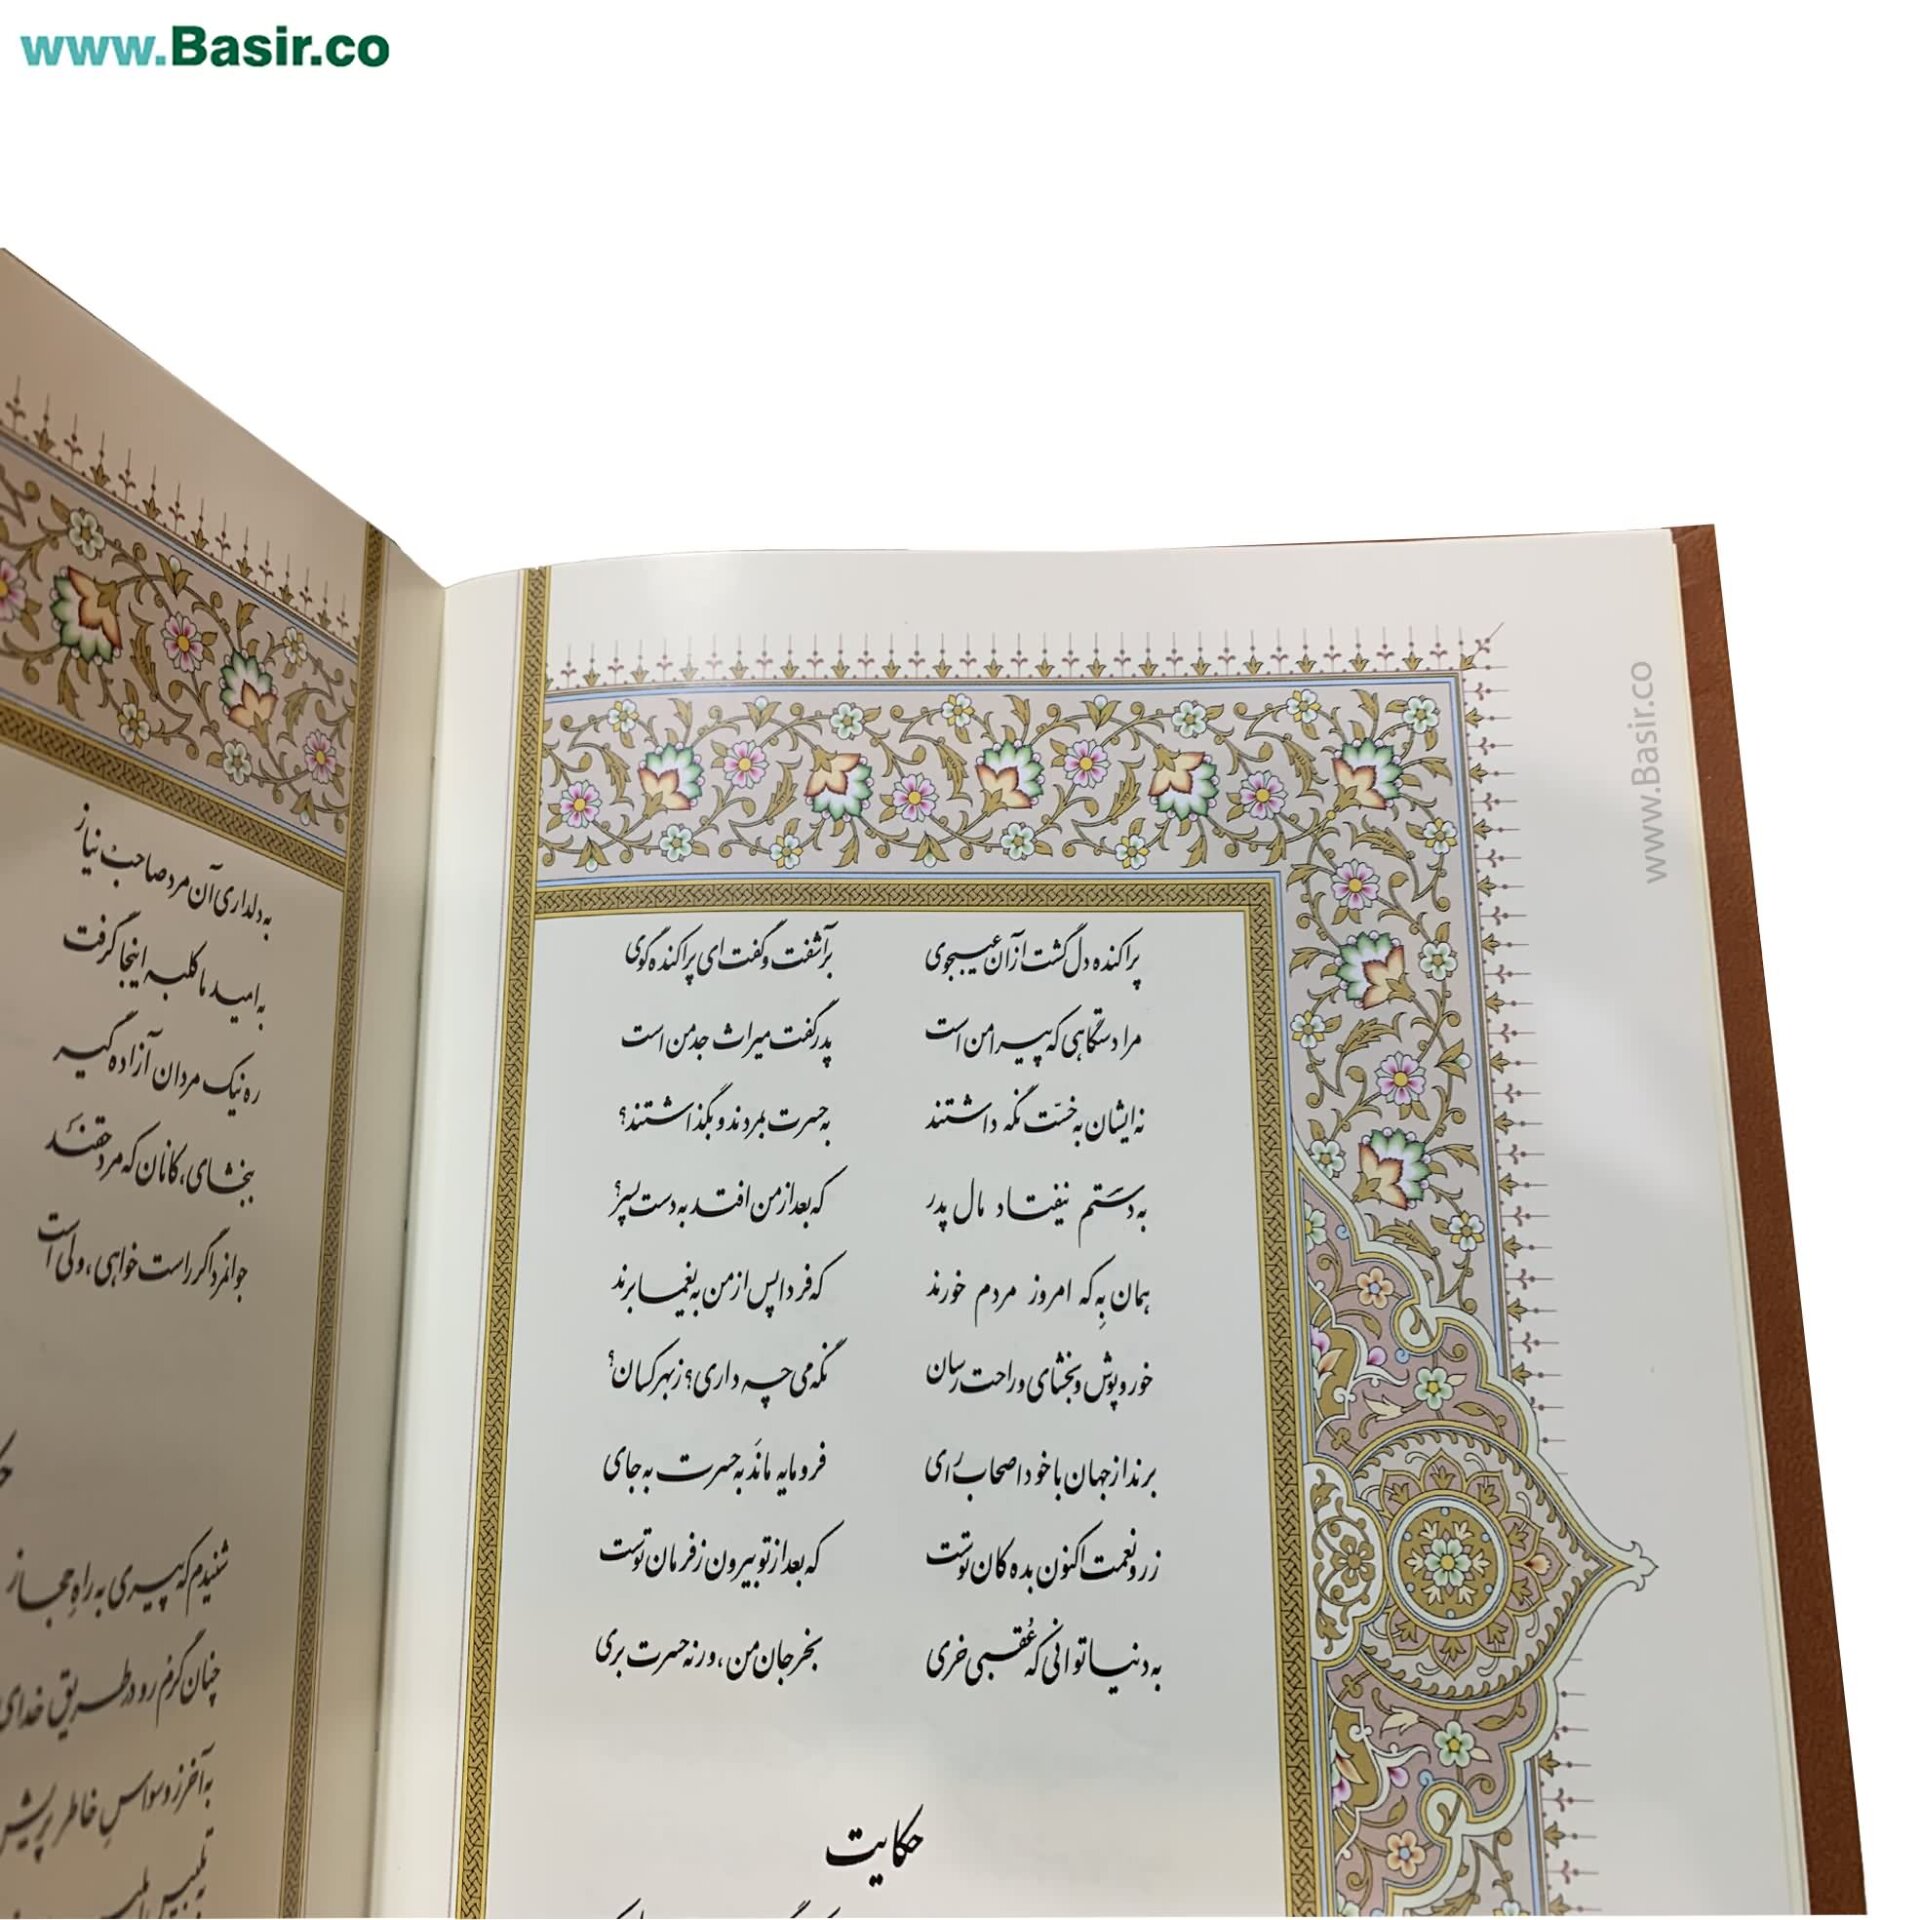 www.Basir.co
پراکنده دل گشت از آن عیبجوی برآشفت و گفت ای پراکنده گوی
مرا دستگاهی که پیرامن است پدر گفت میراث جد من است
نه ایشان به خسّت نگه داشتند به حسرت بمردند و بگذاشتند؟
به دستم نیفتاد مال پدر که بعد از من افتد به دست پسر؟
همان بِه که امروز مردم خورند که فردا پس از من به یغما برند
خور و پوش و بخشای و راحت رسان نگه می چه داری؟ ز بهر کسان؟
برند از جهان با خود اصحاب رای فرومایه مانَد به حسرت به جای
زر و نعمت اکنون بده کان توست که بعد از تو بیرون ز فرمان توست
به دنیا توانی که عُقبی خری بخر جان من، ورنه حسرت بری
حکایت
www.Basir.co
به دلداری آن مرد صاحب نیاز
به امید ما کلبه اینجا گرفت
ره نیک مردان آزاده گیر
ببخشای، کانان که مرد حقند
جوانمرد اگر راست خواهی، ولی است
شنیدم که پیری به راهِ حجاز
چنان گرم رو در طریق خدای
به آخر ز وسواسِ خاطر پریش